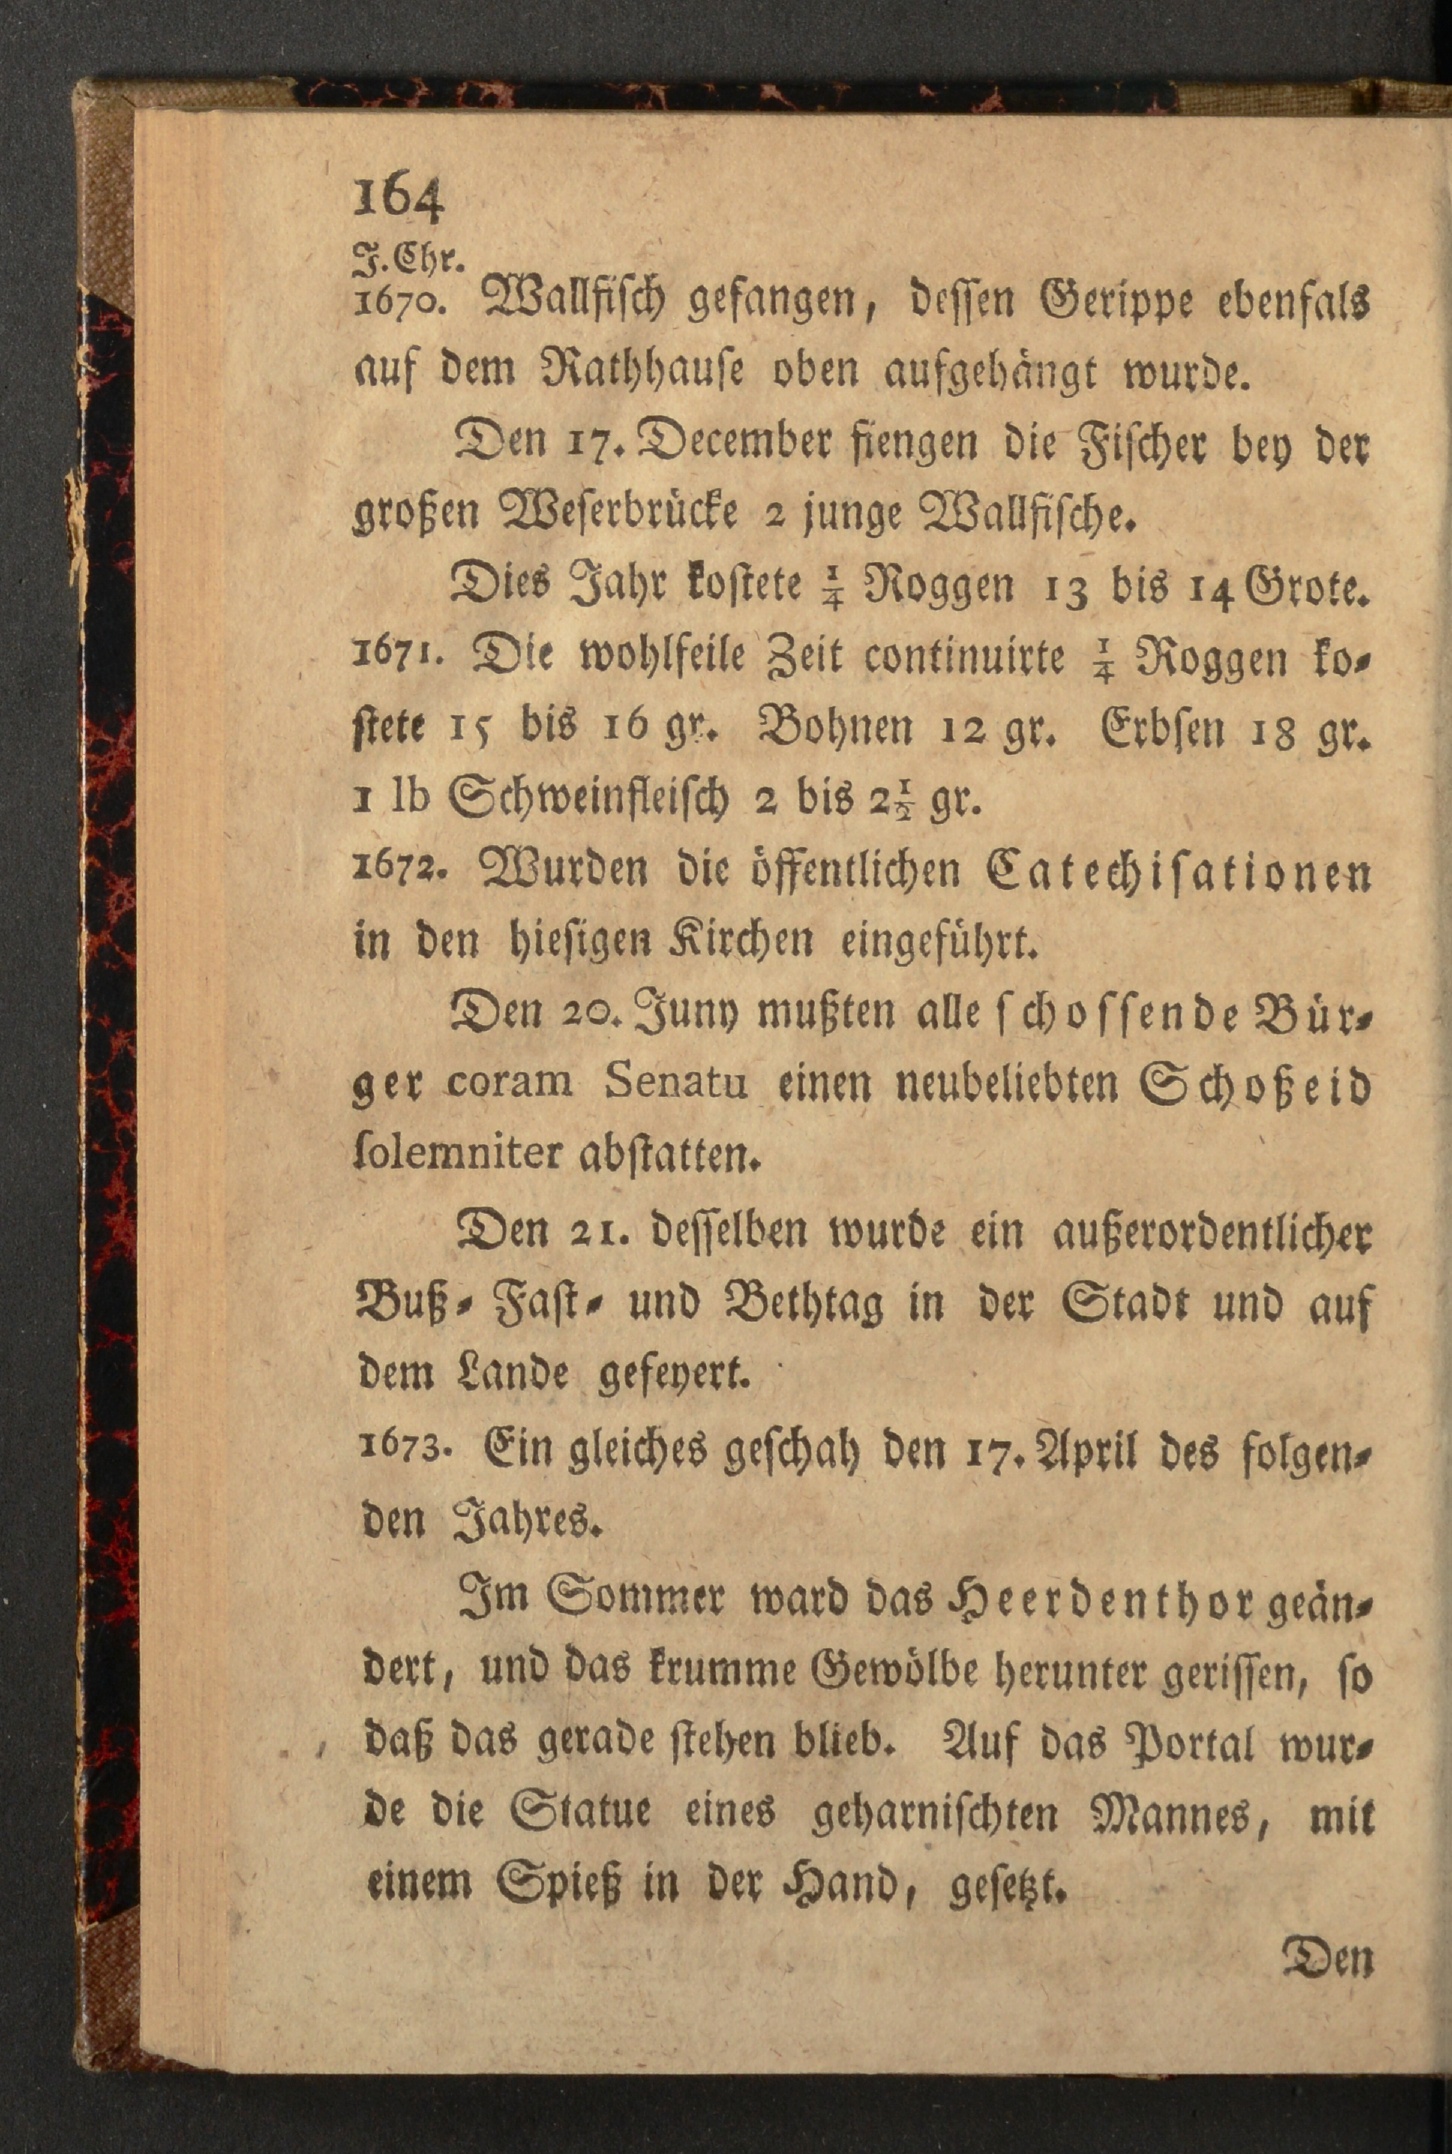 164
J. Chr.
1670. Wallfiſch gefangen, deſſen Gerippe ebenfals
auf dem Rathhauſe oben aufgehängt wurde.
Den 17. December fiengen die Fiſcher bey der
großen Weſerbrücke 2 junge Wallfiſche.
Dies Jahr koſtete ¼ Roggen 13 bis 14 Grote.
1671. Die wohlfeile Zeit continuirte ¼ Roggen ko⸗
ſtete 15 bis 16 gr. Bohnen 12 gr. Erbſen 18 gr.
1 lb Schweinfleiſch 2 bis 2½ gr.
1672. Wurden die öffentlichen Catechiſationen
in den hieſigen Kirchen eingeführt.
Den 20. Juny mußten alle ſchoſſende Bür⸗
ger coram Senatu einen neubeliebten Schoßeid
ſolemniter abſtatten.
Den 21. deſſelben wurde ein außerordentlicher
Buß⸗ Faſt⸗ und Bethtag in der Stadt und auf
dem Lande gefeyert.
1673. Ein gleiches geſchah den 17. April des folgen⸗
den Jahres.
Im Sommer ward das Heerdenthor geän⸗
dert, und das krumme Gewölbe herunter geriſſen, ſo
daß das gerade ſtehen blieb. Auf das Portal wur⸗
de die Statue eines geharniſchten Mannes, mit
einem Spieß in der Hand, geſetzt.
Den